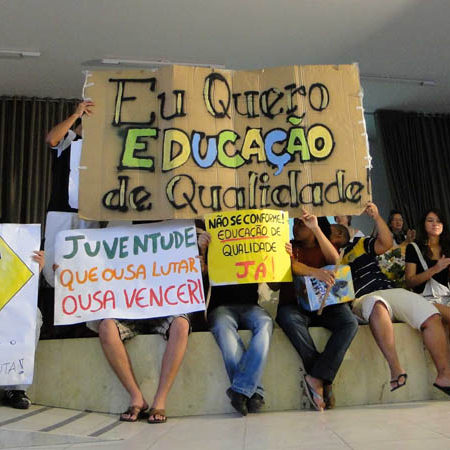 Eu Quero
EDUCAÇÃO
de Qualidade!
JUVENTUDE
QUE OUSA LUTAR
OUSA VENCER!
NÃO SE CONFORME!
EDUCAÇÃO DE
QUALIDADE
JÁ!